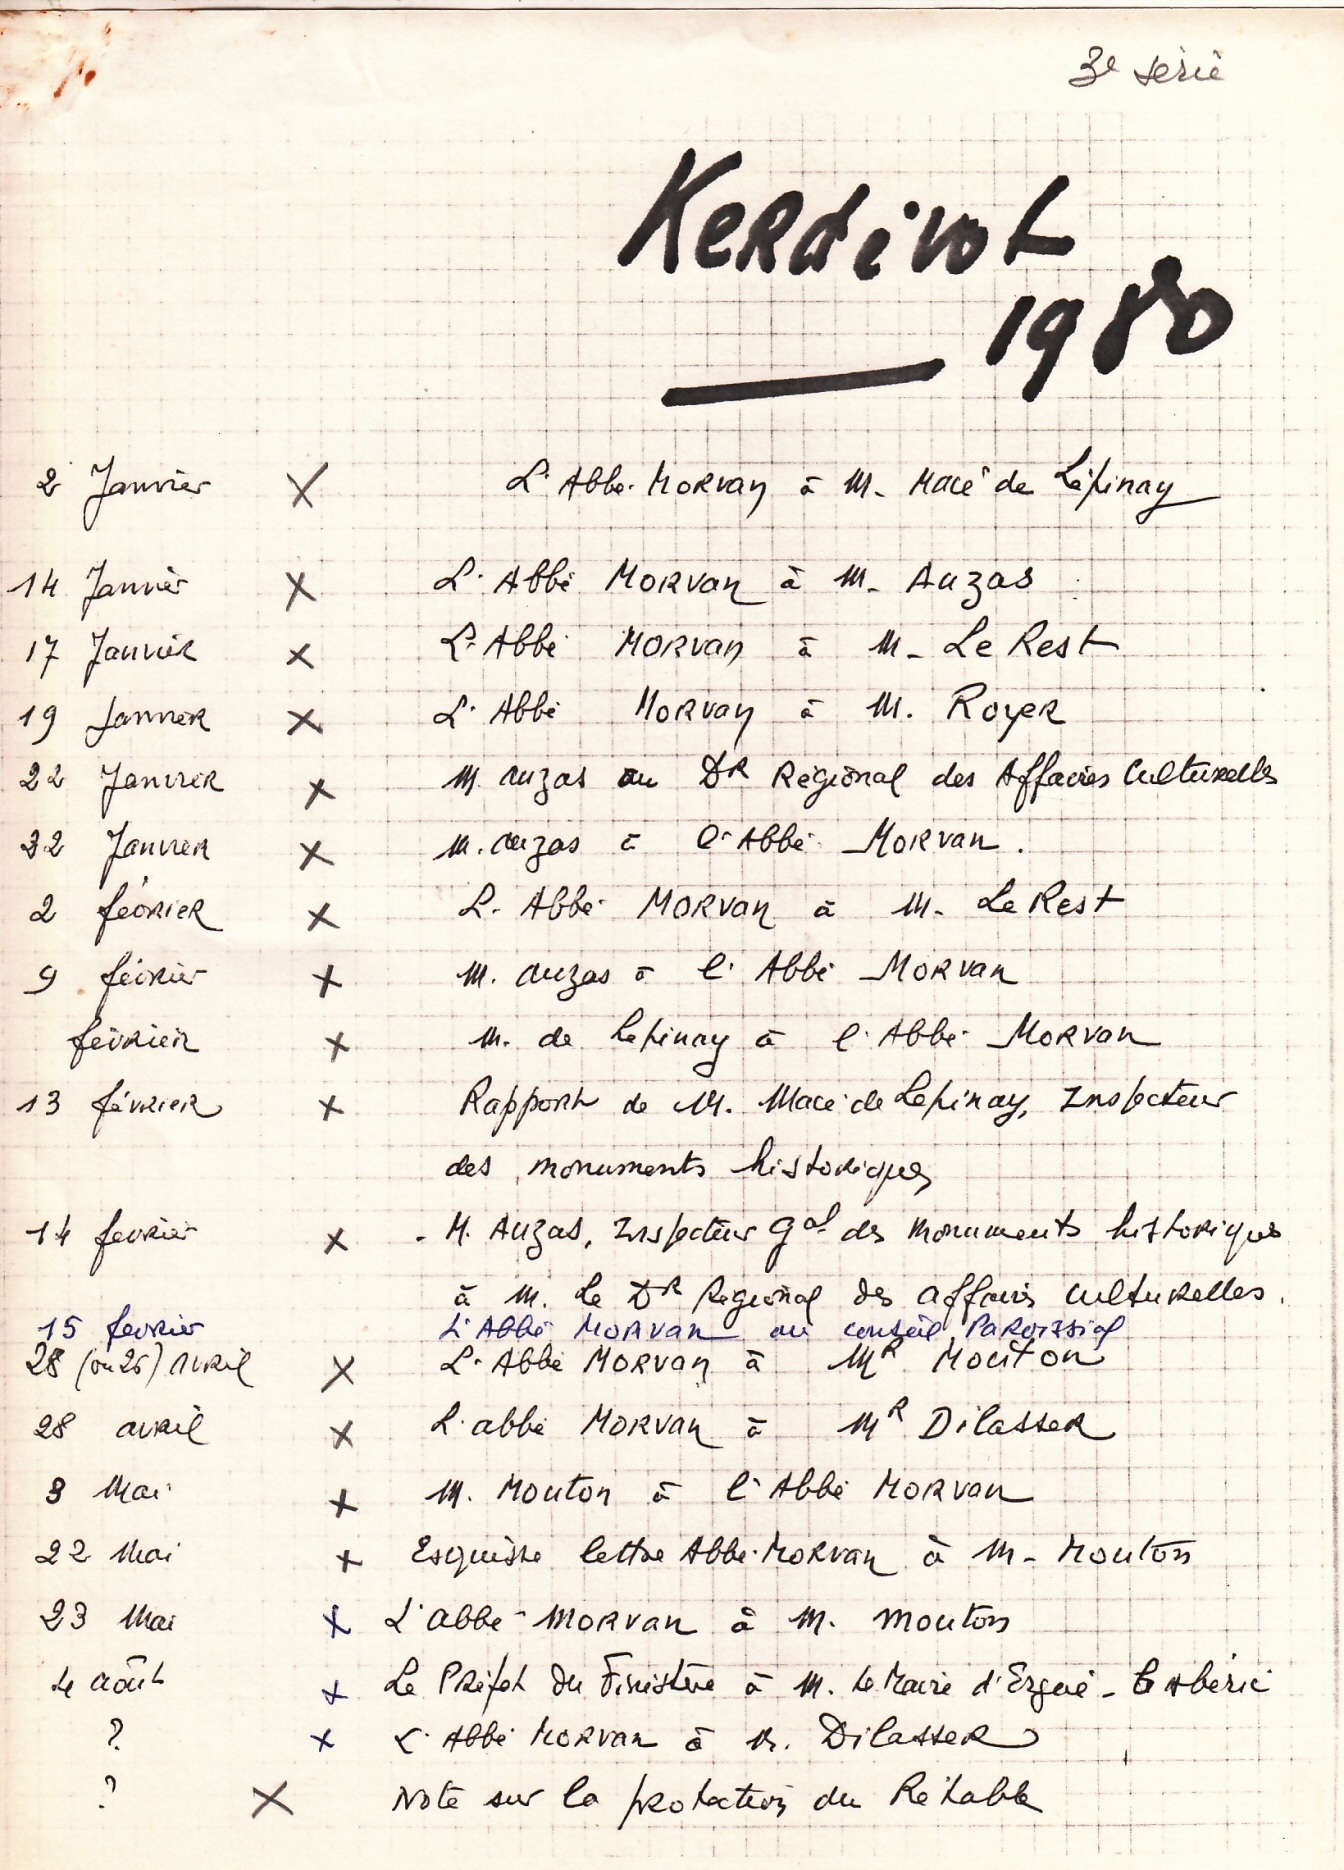 3e série
Kerdévot
1980
2 Janvier X L'Abbé MORVAN à M. Macé de Lépinay
14 Janvier X L'Abbé MORVAN à M. Auzas
17 Janvier X L'Abbé MORVAN à M. Le Rest
19 Janvier X L'Abbé MORVAN à M. Royer
22 Janvier X M. Auzas au DR Régional des Affaires Culturelles
22 Janvier X M. Auzas à l'Abbé MORVAN.
2 février X L'Abbé MORVAN à M. Le Rest
9 février X M. Auzas à l'Abbé MORVAN
février X M. de Lépinay à l'Abbé MORVAN
13 février X Rapport de M. Macé de Lépinay, Inspecteur
des monuments historiques
14 février X - M. Auzas, Inspecteur Gal des Monuments historiques
à M. le DR Régional des affaires culturelles.
15 février L'Abbé MORVAN au conseil Paroissial
28 (ou 26) Avril X L'Abbé MORVAN à MR Mouton
28 avril X L'abbé MORVAN à MR Dilasser
3 Mai X M. Mouton à l'Abbé MORVAN
22 Mai X Esquisse lettre Abbé MORVAN à M. Mouton
23 Mai X L'abbé MORVAN à M. Mouton
4 août X Le Préfet du Finistère à M. le Maire d'Ergué-Gabéric
? X L'Abbé MORVAN à M. Dilasser
? X Note sur la protection du Rétable